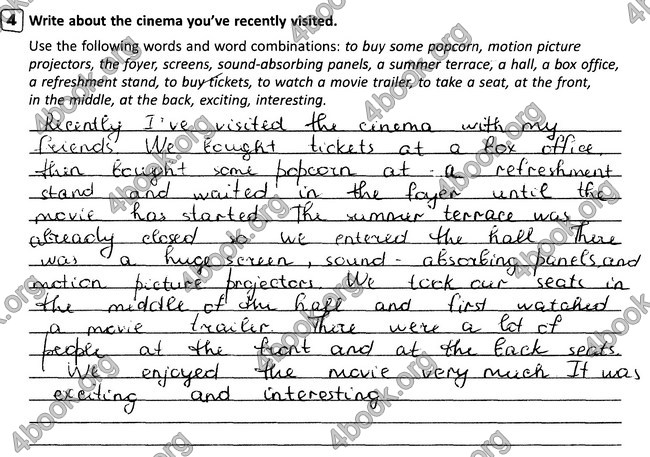 4 Write about the cinema you've recently visited.
Use the following words and word combinations: to buy some popcorn, motion picture
projectors, the foyer, screens, sound-absorbing panels, a summer terrace, a hall, a box office,
a refreshment stand, to buy tickets, to watch a movie trailer, to take a seat, at the front,
in the middle, at the back, exciting, interesting.
Recently I've visited the cinema with my
friends. We bought tickets at a box office,
then bought some popcorn at a refreshment
stand and waited in the foyer until the
movie has started. The summer terrace was
already closed so we entered the hall. There
was a huge screen, sound-absorbing panels and
motion picture projectors. We took our seats in
the middle of the hall and first watched
a movie trailer. There were a lot of
people at the front and at the back seats.
We enjoyed the movie very much. It was
exciting and interesting.
4book.org